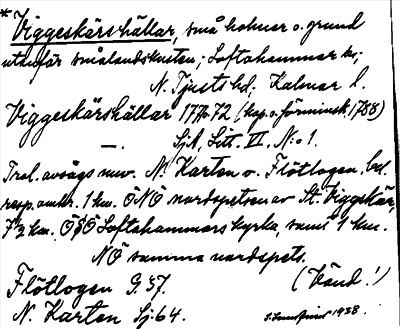 * Viggeskärshällar, små holmar o. grund
utanför smålandskusten; Loftahammar sn;
N. Tjusts hd. Kalmar l.
Viggeskärshällar 1770-72 (kop. o. förminsk. 1788)
—. Sjk. Litt. VI, N:o 1.
Trol. avsågs nuv. N. Karten o. Flötlogen, bel.
resp. omkr. 1 km. ÖNÖ nordspetsen av St. Viggeskär,
7½ km. ÖSÖ Loftahammars kyrka, samt 1 km.
NÖ samma nordspets.
Flötlogen G. 37. (Vänd!)
N. Karten Sj. 64. 1938.